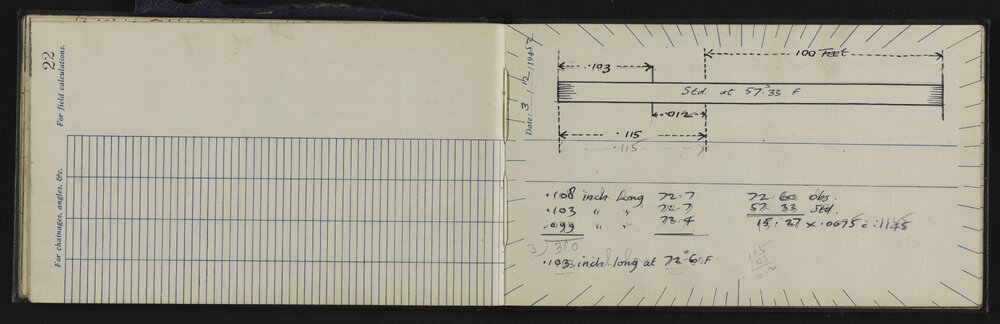 22
For field calculations.
For chainages, angles, &c.
Date: 3 / 12 / 1945
100 Feet
.103
Std. at 57.°33 F
.012
.115
.115
.108 inch long 72.7 72.60 obs.
.103 " " 72.7 57.33 Std.
.099 " " 72.4 15.27 x .0075 = .1145
3) 310
.103 inch long at 72.°6 F